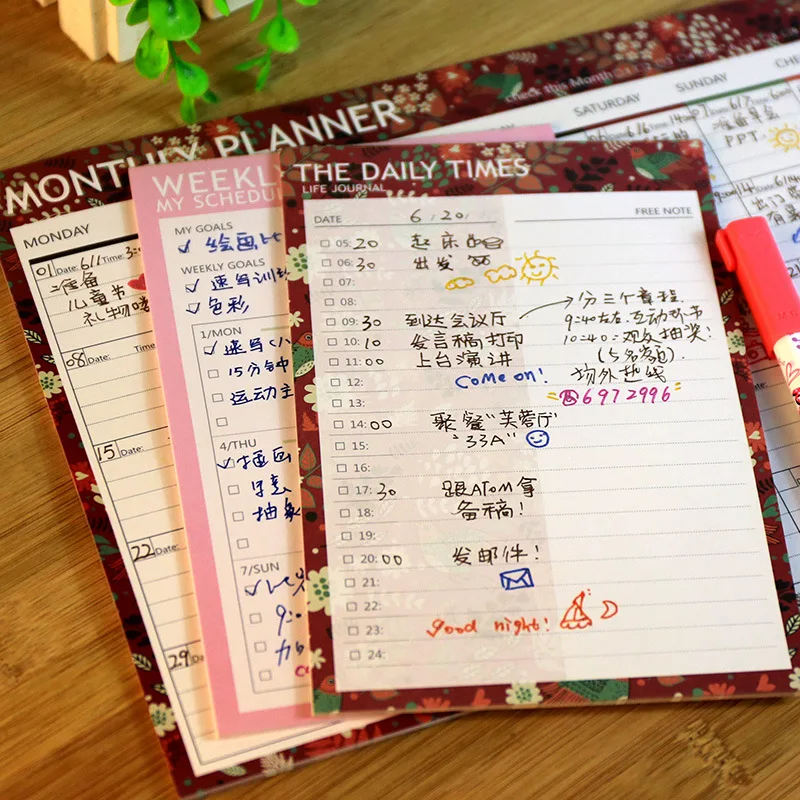 MONTHLY PLANNER
check the Month
MONDAY
SATURDAY
SUNDAY
01 Date: 6/1 Time: 3:
准备
儿童节
礼物喽
08 Date: Time
15 Date:
22 Date:
29 Da
6/7
准备早会
PPT
6/14
出门
WEEKLY
MY SCHEDU
MY GOALS
绘画比
WEEKLY GOALS
速写训练
色彩
1/MON
速写
15分钟
运动主
4/THU
插画
寻意
抽象
7/SUN
9:0
THE DAILY TIMES
LIFE JOURNAL
DATE 6/20/ FREE NOTE
05:20 起床
06:30 出发
07:
08:
09:30 到达会议厅 分三个章程.
10:10 发言稿打印 9:40左右 互动环节
11:00 上台演讲 10:40=观友抽奖!
(5名额)
12: Come on! 场外热线
13: ☎6972996
14:00 聚餐"芙蓉厅"
15: "33A"
16:
17:30 跟ATOM拿
18: 备稿!
19:
20:00 发邮件!
21:
22:
23: good night!
24: